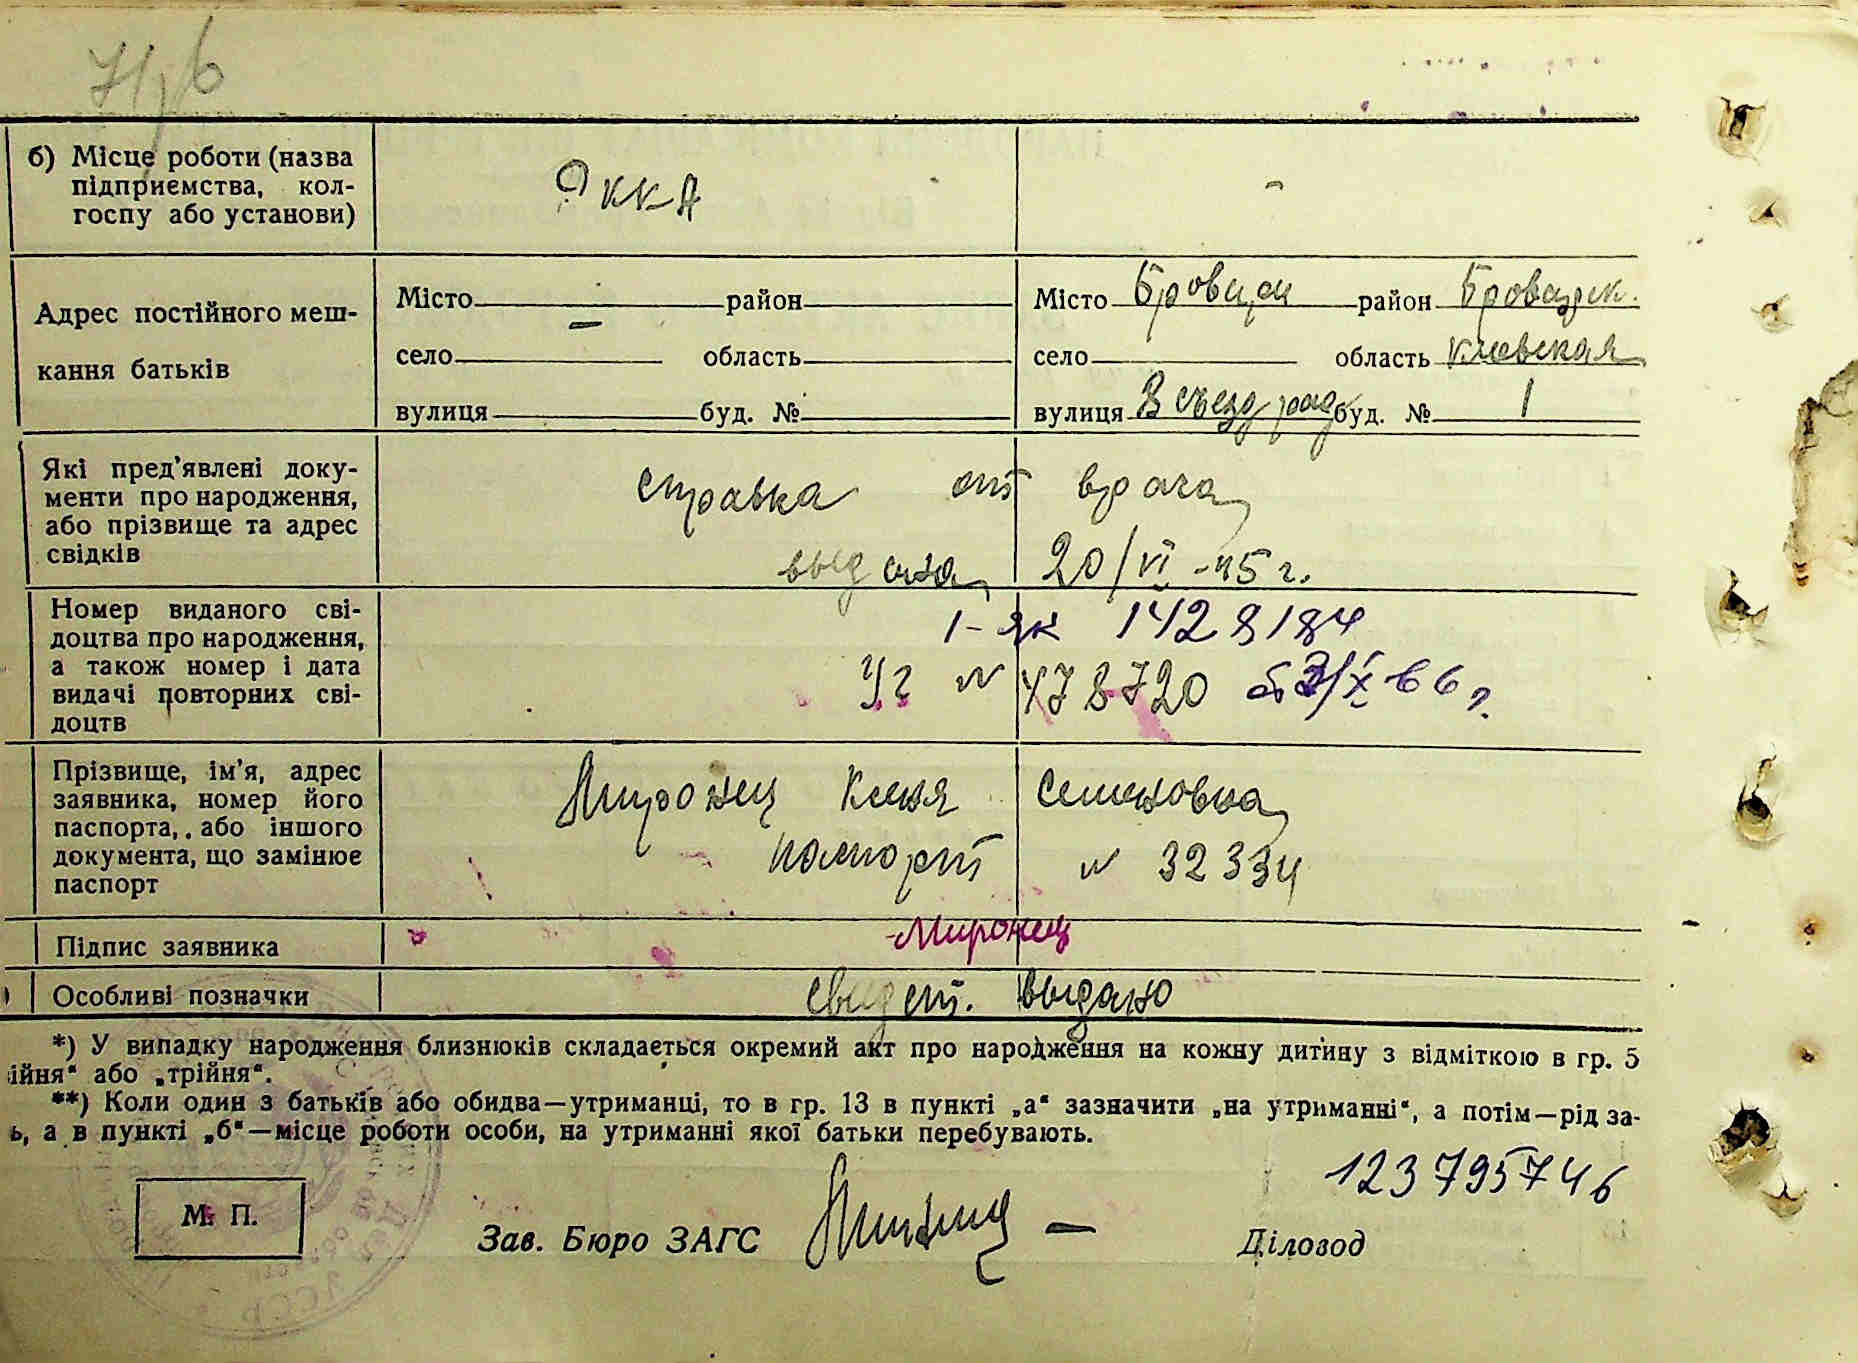 71,б
б) Місце роботи (назва
підприємства, кол-
госпу або установи)
РККА
-
Адрес постійного меш-
кання батьків
Місто район
село - область
вулиця буд. №
Місто Бровары район Броварск.
село область Киевская
вулиця 8 съезд рад буд. № 1
Які пред'явлені доку-
менти про народження,
або прізвище та адрес
свідків
справка от врача
выдана 20/VI-45 г.
Номер виданого сві-
доцтва про народження,
а також номер і дата
видачі повторних сві-
доцтв
1-як 1428184
УЗ N 478720 от 3/X 66 г.
Прізвище, ім'я, адрес
заявника, номер його
паспорта, або іншого
документа, що замінює
паспорт
Миронец Ксения Семеновна
паспорт N 32334
Підпис заявника
Миронец
Особливі позначки
свидет. выдано
*) У випадку народження близнюків складається окремий акт про народження на кожну дитину з відміткою в гр. 5
ійня" або „трійня".
**) Коли один з батьків або обидва—утриманці, то в гр. 13 в пункті „а" зазначити „на утриманні", а потім—рід за-
ь, а в пункті „б"—місце роботи особи, на утриманні якої батьки перебувають.
123795746
М. П.
Зав. Бюро ЗАГС
Діловод